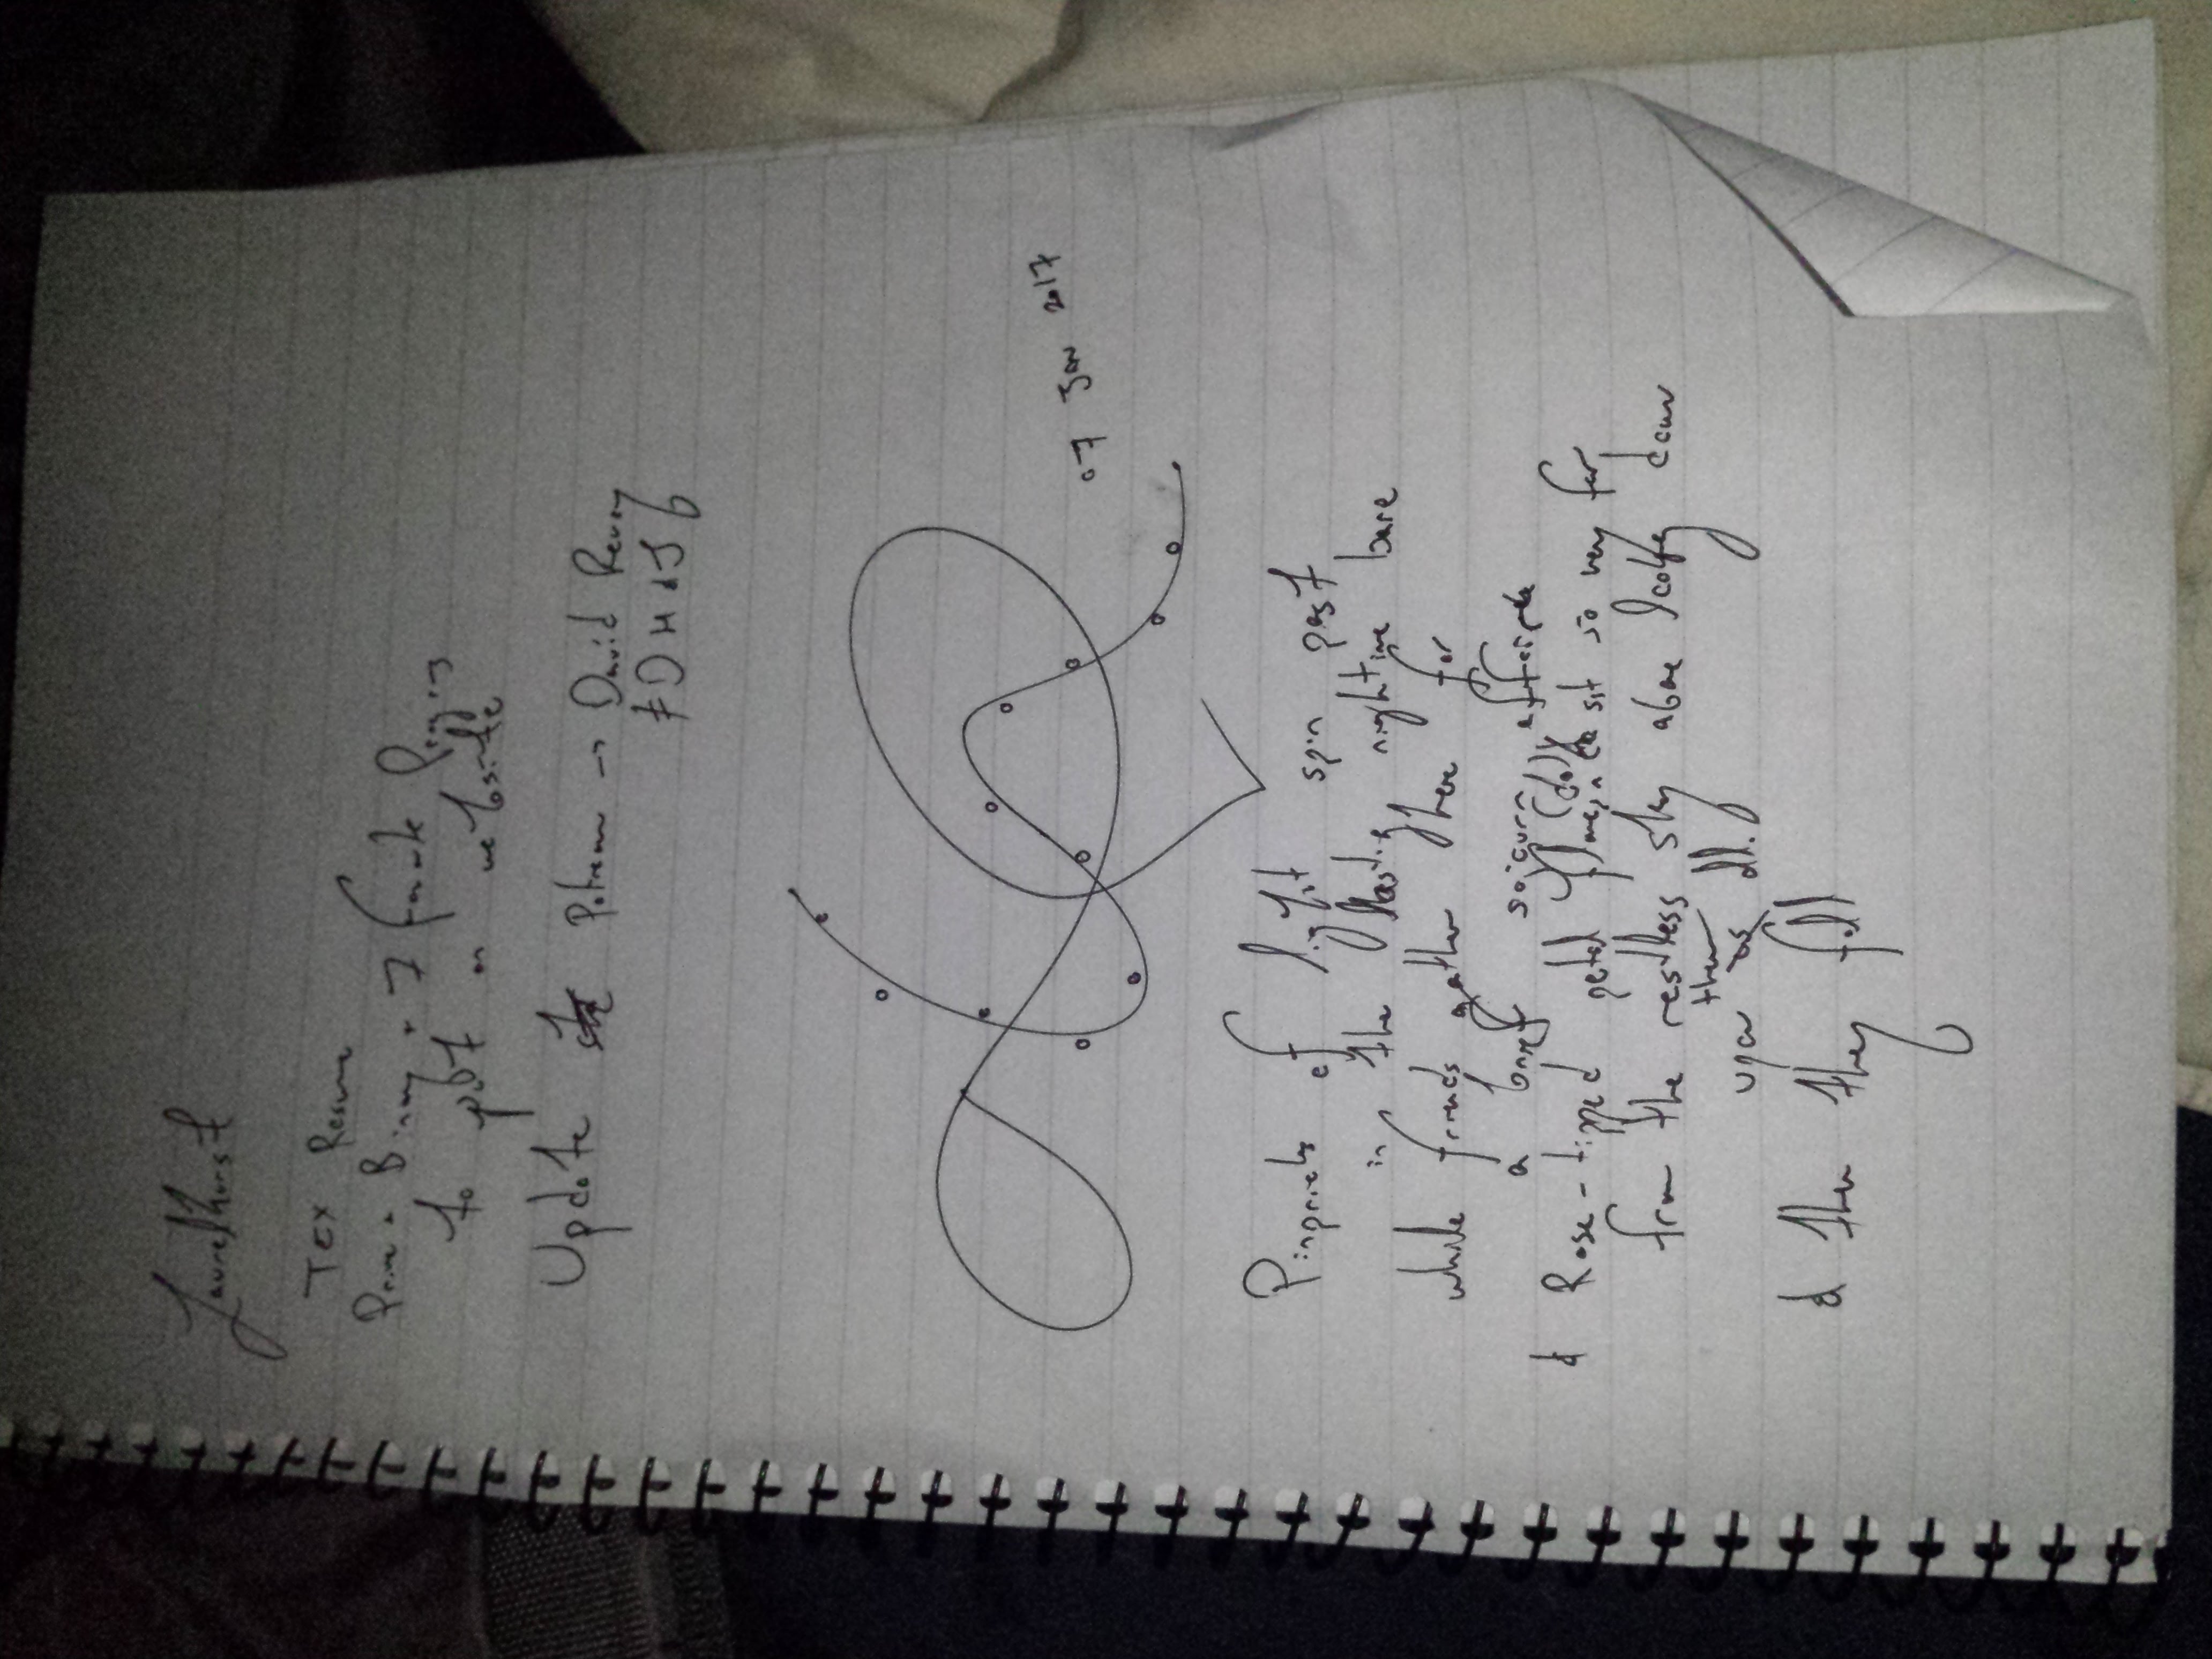 Laurelhurst
TEX Resume
Prime + Binary + 7 favorite
to put on website
Update Patreon → David Revoy
07 Jan 2017
Pinpricks of light spin past
in the nightime bare
while friends gather here for
a brief sojourn affair
& Rose-tipped petal (do) sit so very far
from the restless sky above looking down
upon them all.
& then they fall